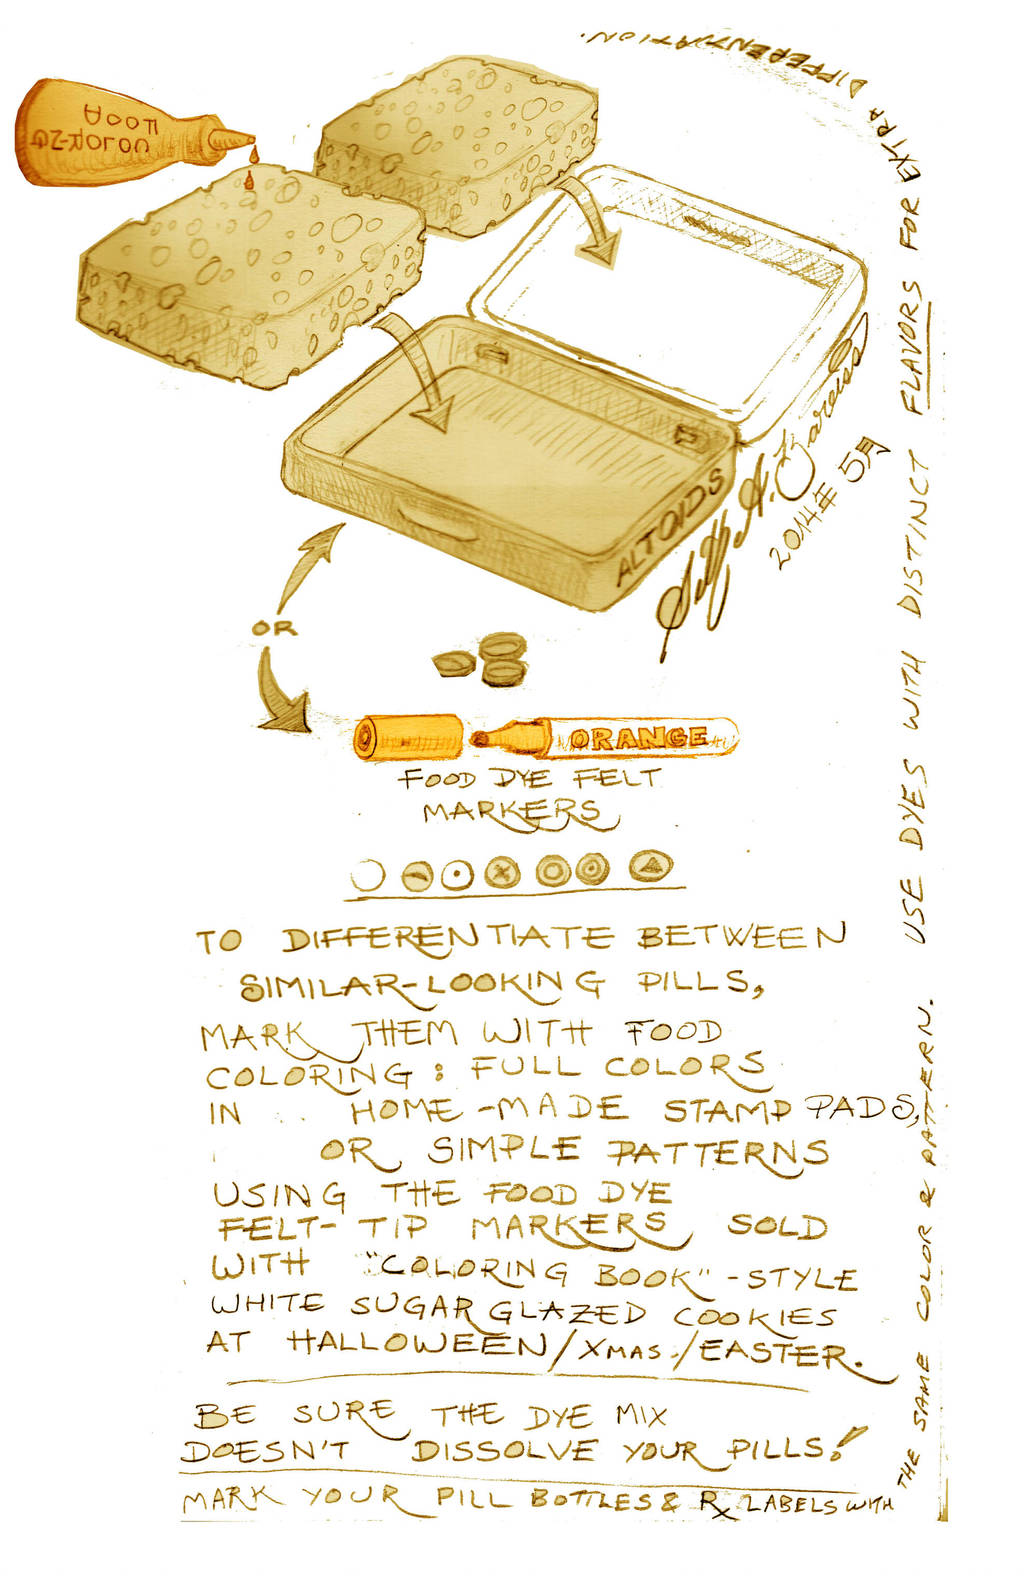 FOOD
COLOR-ZG
ALTOIDS
2014年5月
OR
ORANGE
FOOD DYE FELT
MARKERS
TO DIFFERENTIATE BETWEEN
SIMILAR-LOOKING PILLS,
MARK THEM WITH FOOD
COLORING: FULL COLORS
IN HOME-MADE STAMP PADS,
OR SIMPLE PATTERNS
USING THE FOOD DYE
FELT-TIP MARKERS SOLD
WITH "COLORING BOOK"-STYLE
WHITE SUGAR GLAZED COOKIES
AT HALLOWEEN/XMAS./EASTER.
BE SURE THE DYE MIX
DOESN'T DISSOLVE YOUR PILLS!
MARK YOUR PILL BOTTLES & Rx LABELS WITH
THE SAME COLOR & PATTERN.
USE DYES WITH DISTINCT FLAVORS FOR EXTRA DIFFERENTIATION.